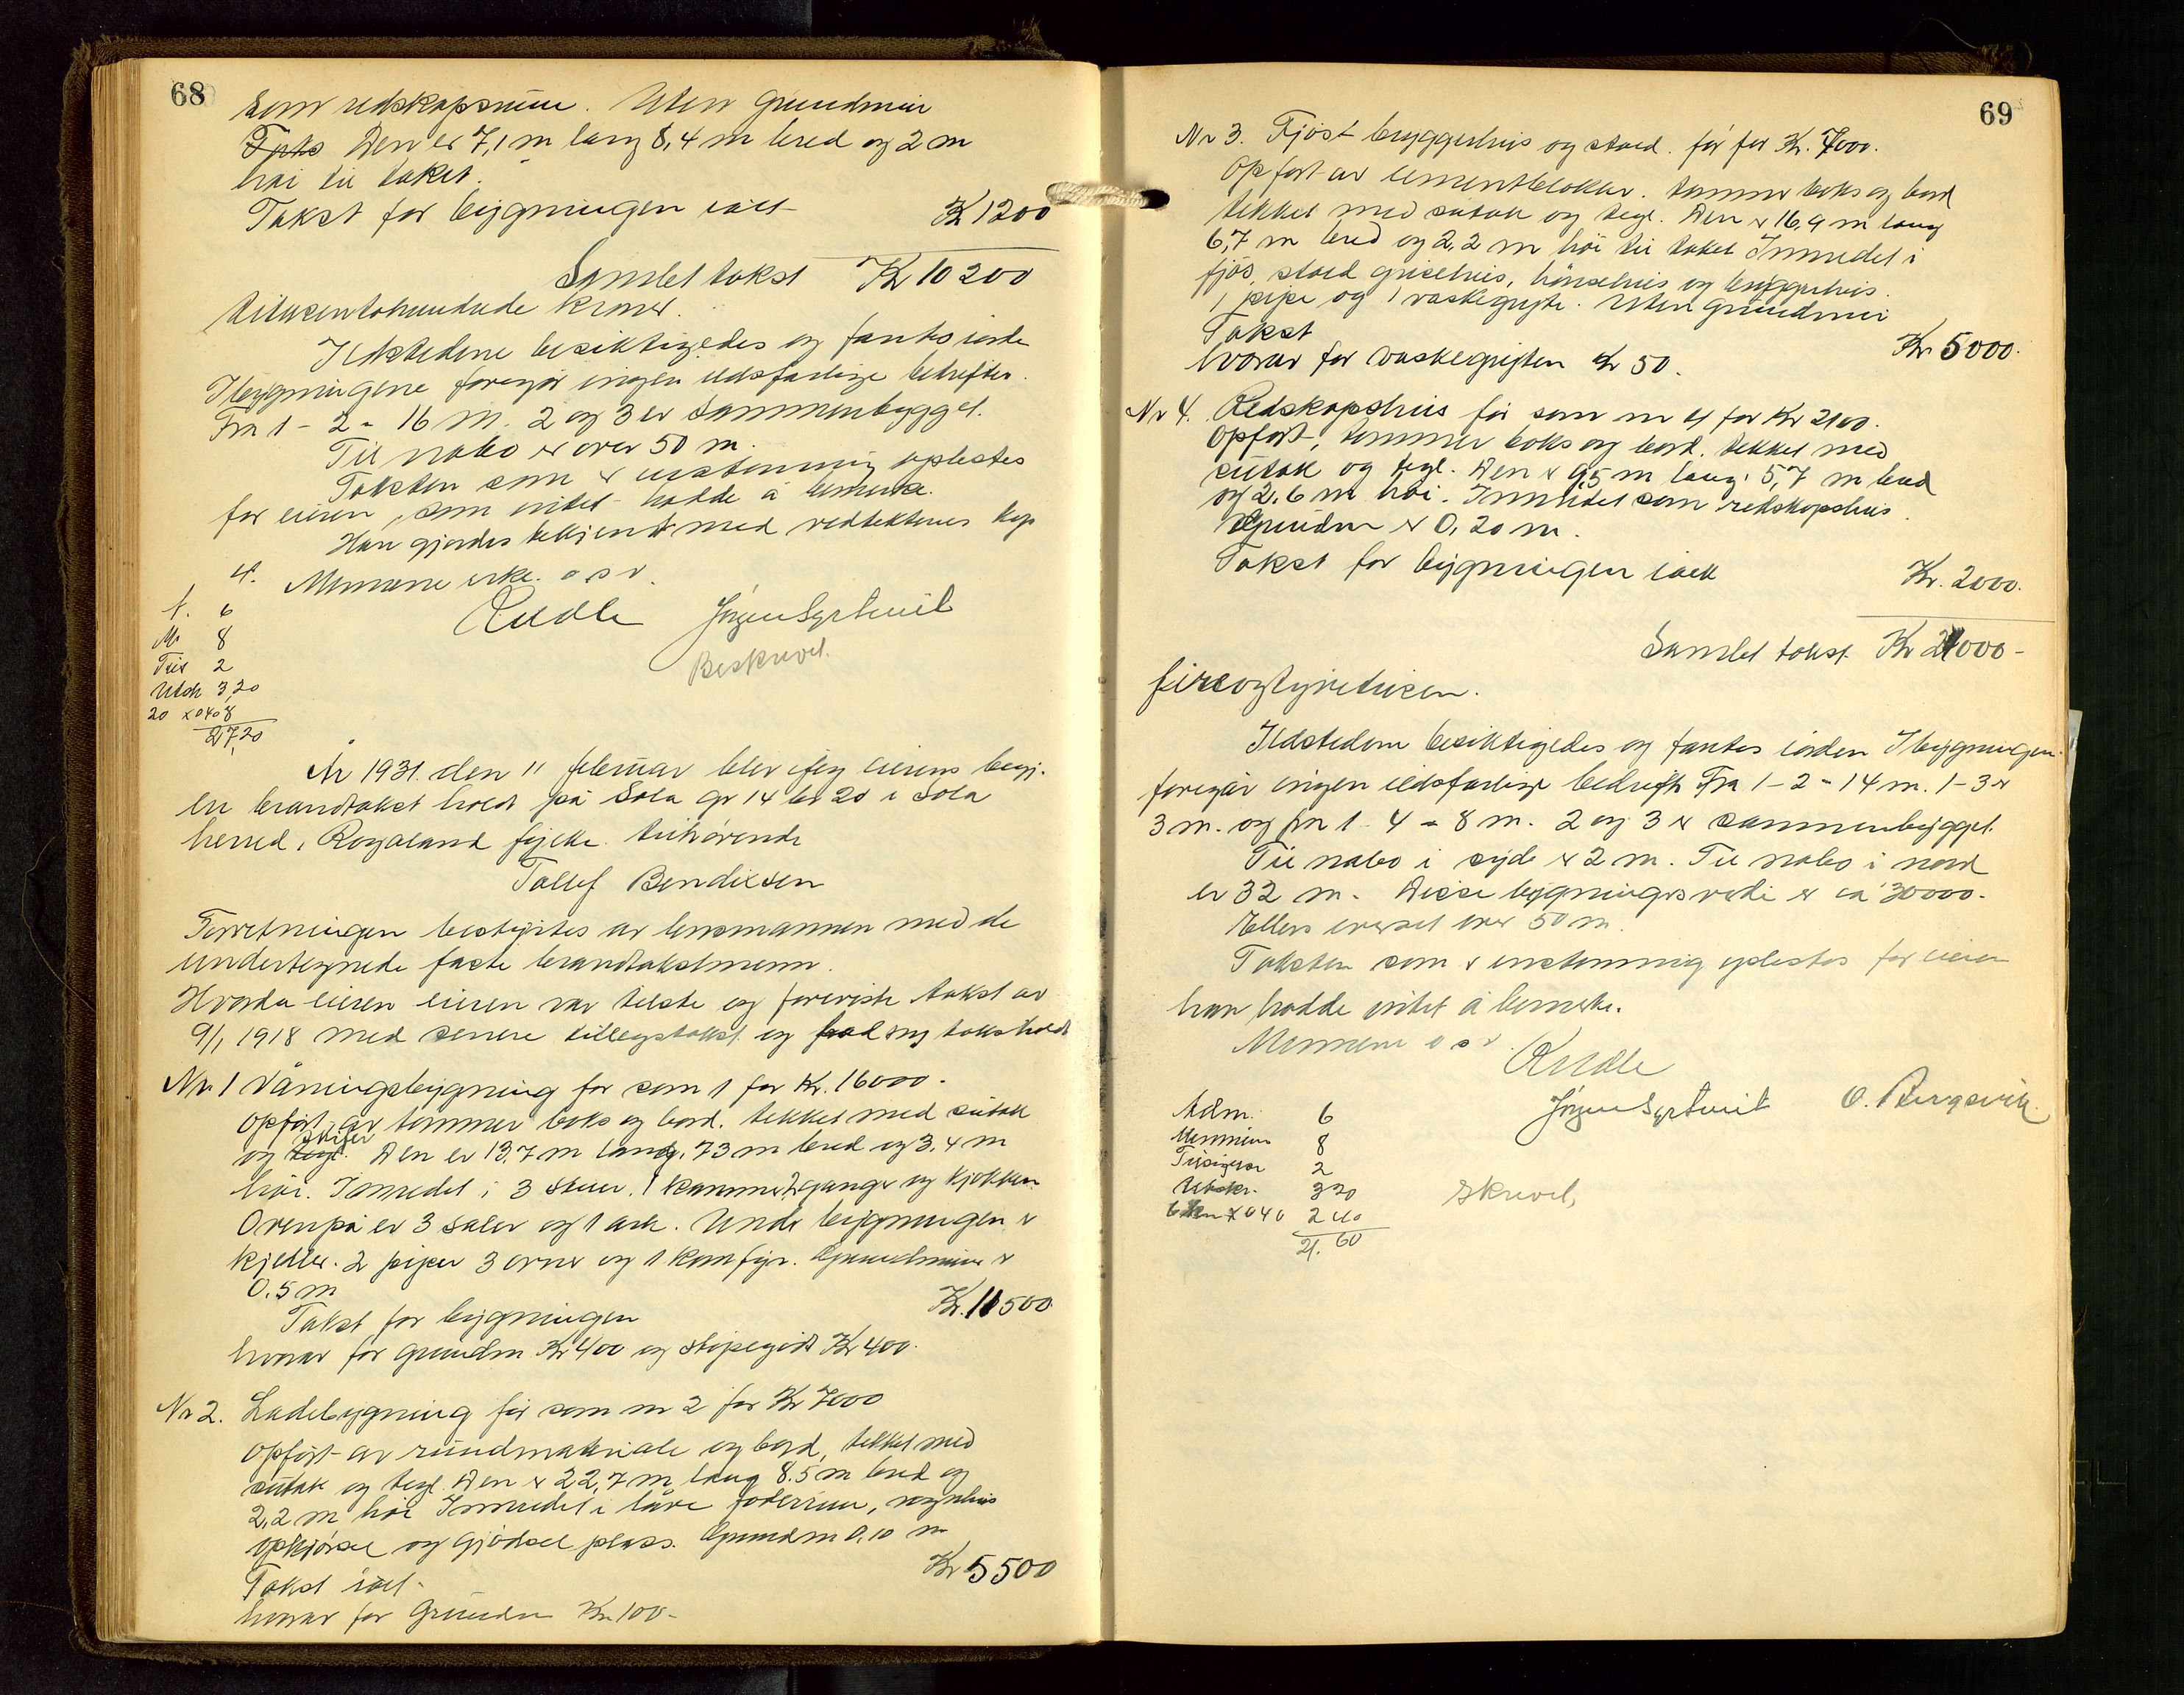 68
som redskapsrum. Uten Grundmur
Den er 7,1 m lang 8,4 m bred og 2 m
høi til taket.
Takst for bygningen ialt Kr 1200
Samlet takst Kr 10 200
titusentohundrede kroner.
Ildstedene besiktigedes og fantes iorden
I bygningene foregår ingen ildsfarlige bedrifter.
Fra 1 - 2 = 16 m. 2 og 3 er sammenbygget.
Til nabo er over 50 m.
Taksten som er enstemmig oplestes
for eieren, som intet hadde å bemerke.
Han gjordes bekjent med vedtektenes kap
4. Mennene erkl. o s v.
Jørgen Syrtveit
Beskrevet.
A. 6
M 8
Tils 2
Utsk 3,20
20 x 040 8
27,20
År 1931 den 11 februar blev efter eierens begj.
en brandtakst holdt på Sola gr 14 br 20 i Sola
herred, Rogaland fylke tilhørende
Tollef Bendixsen
Forretningen bestyrtes av lensmannen med de
undertegnede faste brandtakstmenn.
Hvorda eieren eieren var tilste og foreviste takst av
9/1 1918 med senere tillegstakst og blev ny takst holdt
Nr 1 Våningsbygning før som 1 for Kr. 16000.
Opført av tømmer boks og bord. tekket med sutak
og skifer. Den er 13,7 m lang, 7,3 m bred og 3,4 m
høi. Innredet i 3 stuer, 1 kammer 2 ganger og kjøkken
Ovenpå er 3 saler og 1 ark. Under bygningen er
kjeller. 2 piper 3 ovner og 1 komfyr. Grundmuren er
0.5 m
Takst for bygningen Kr. 11500
hvorav for grundm Kr 400 og støpegods Kr 400.
Nr 2. Ladebygning før som nr 2 for Kr 7000
Opført av rundmateriale og bord, tekket med
sutak og tegl. Den er 22,7 m lang 8.5 m bred og
2,2 m høi Innredet i låve foderrum, vognhus
opkjørsel og Gjødsel plass. Grundm 0,10 m
Takst ialt Kr 5500
hvorav for Grundm Kr. 100-
69
Nr 3. Fjøs bryggerhus og stald. før for Kr. 7000.
Opført av cementblokker. tømmer boks og bord
tekket med sutak og tegl. Den er 16,9 m lang
6,7 m bred og 2,2 m høi til taket Innredet i
fjøs, stald grisehus, hønsehus og bryggerhus.
1 pipe og 1 vaskegryte. Uten Grundmur
Takst Kr. 5000.
hvorav for vaskegryten Kr 50.
Nr 4. Redskapshus før som nr 4 for Kr 2100.
Opført, tømmer boks og bord. tekket med
sutak og tegl. Den er 9,5 m lang, 5,7 m bred
og 2,6 m høi. Innredet som redskapshus.
Grundm er 0,20 m.
Takst for bygningen ialt Kr. 2000.
Samlet takst Kr 24000-
fireogtyvetusen.
Ildstedene besiktigedes og fantes iorden I bygningen
foregår ingen ildsfarlige bedrift Fra 1-2 = 14 m. 1-3 er
3 m. og fra 1-4 = 8 m. 2 og 3 er sammenbygget.
Til nabo i syd er 2 m. Til nabo i nord
er 32 m. Disse bygningers verdi er ca 30000.
Ellers overset over 50 m.
Taksten som er enstemmig oplestes for eieren
han hadde intet å bemerke.
Mennene o s v.
Jørgen Syrtveit O. Bergsvik
Adm. 6
Mennene 8
Tilsigelse 2
Utskr. 3 20
6 km x 040 2 40
21. 60
Skrevet,